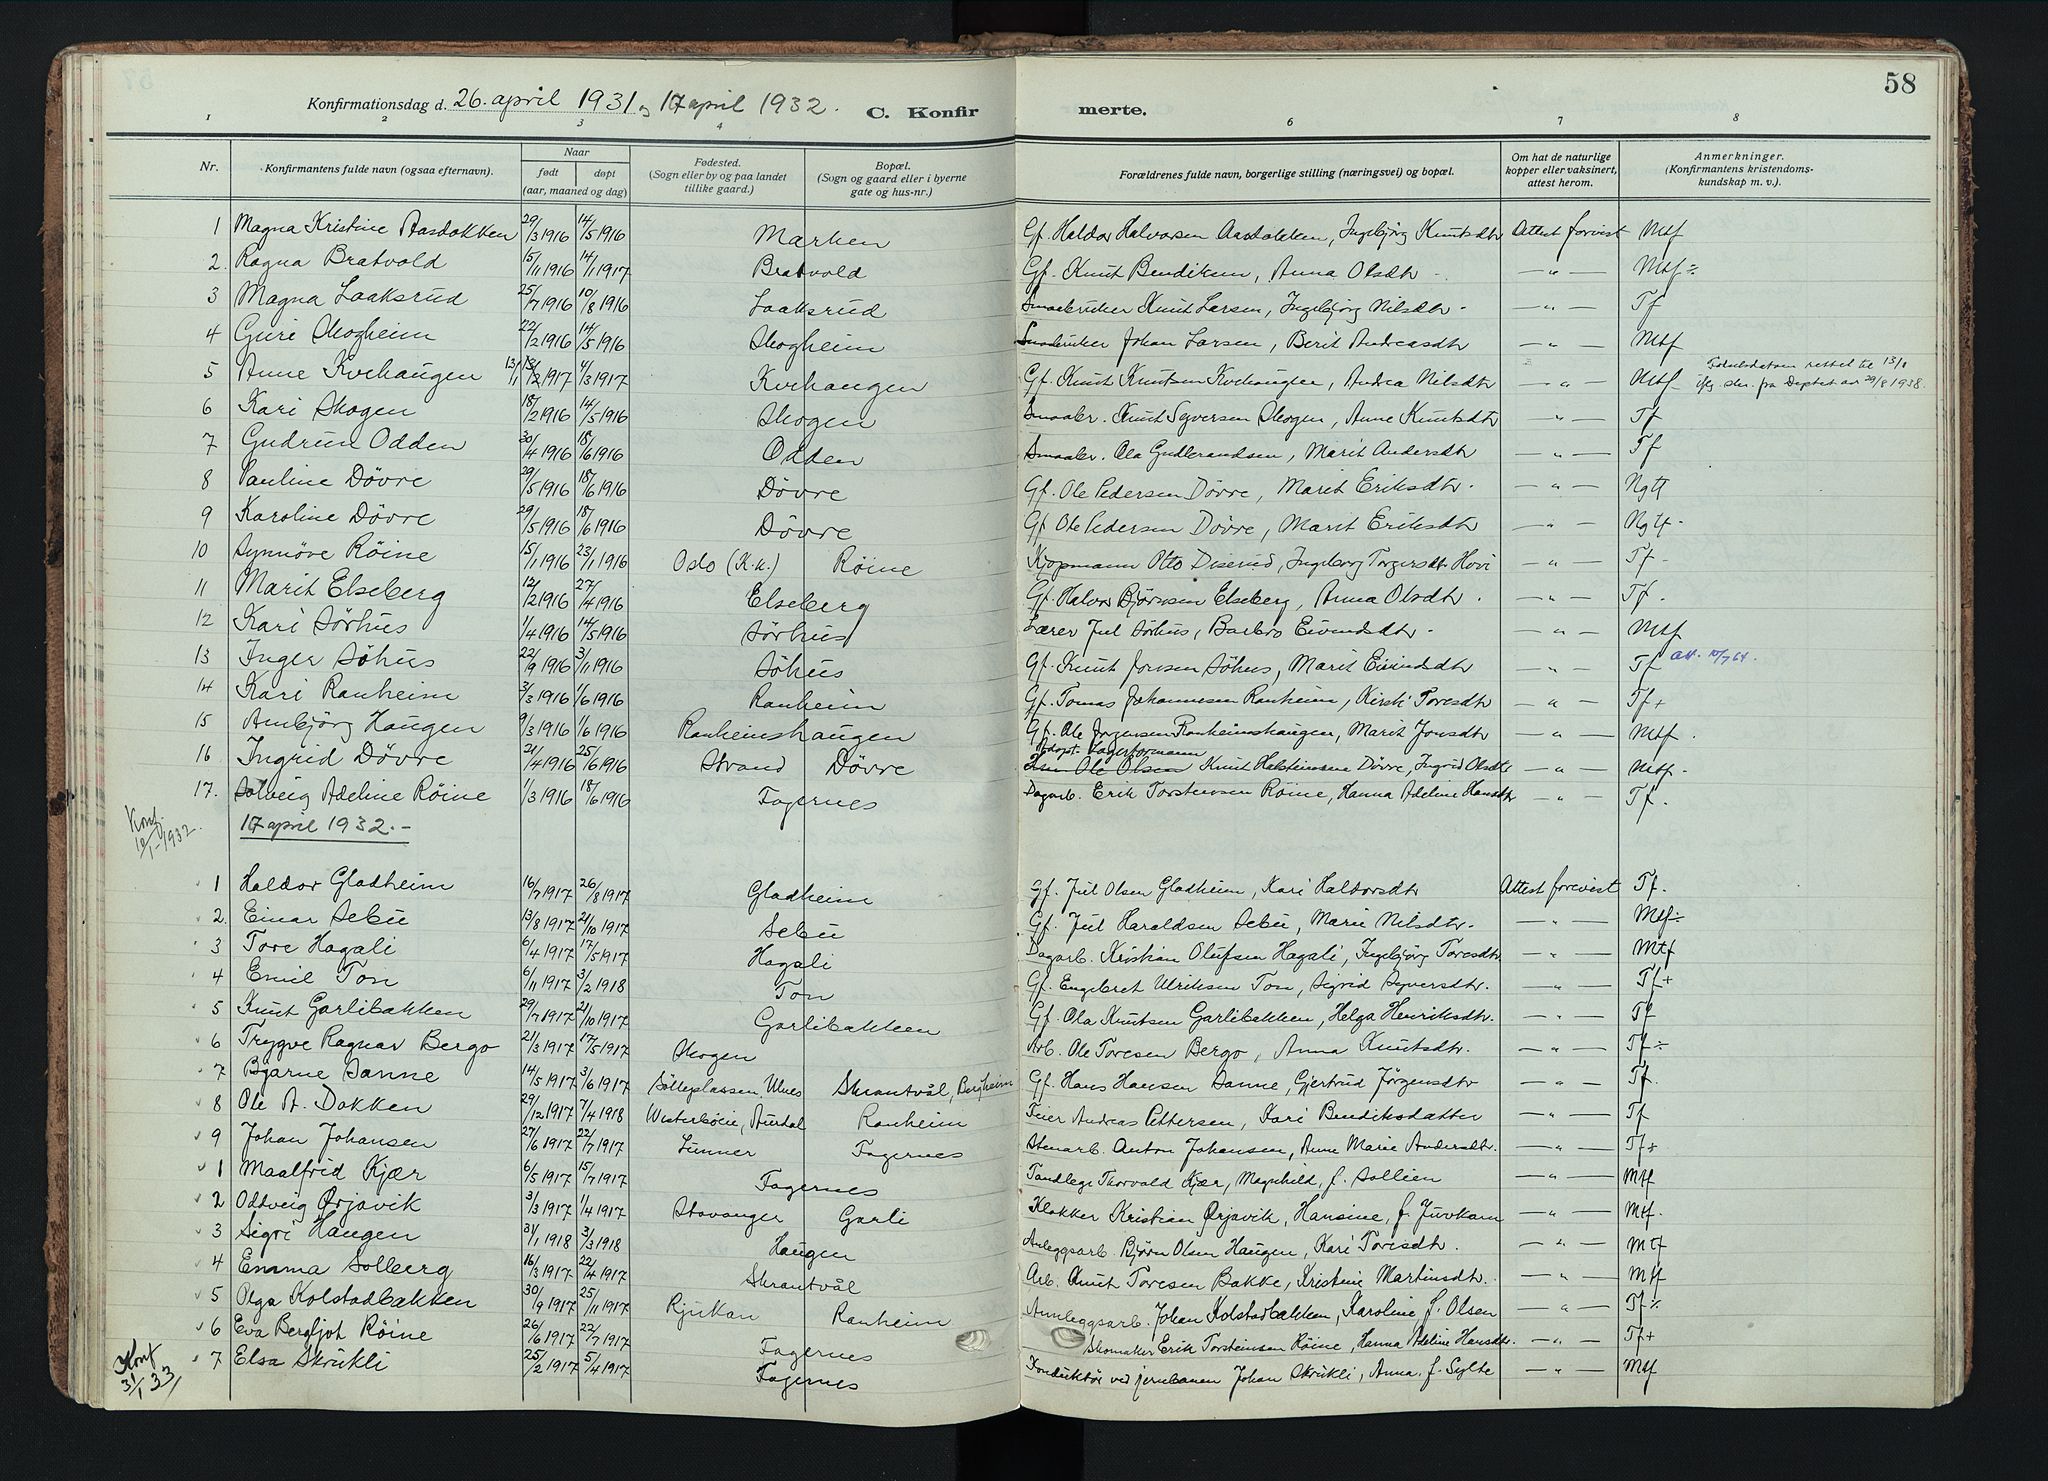 58
Konfirmationsdag d. 26. april 1931 og 17 april 1932. C. Konfirmerte.
1 2 3 4 6 7 8
Nr. Konfirmantens fulde navn (ogsaa efternavn). Naar født døpt (aar, maaned og dag) Fødested. (Sogn eller by og paa landet tillike gaard.) Bopæl. (Sogn og gaard eller i byerne gate og hus-nr.) Forældrenes fulde navn, borgerlige stilling (næringsvei) og bopæl. Om hat de naturlige kopper eller vaksinert, attest herom. Anmerkninger. (Konfirmantens kristendoms-kundskap m. v.).
1 Magna Kristine Aasdokken 29/3 1916 14/5 1916 Marken Gf. Haldor Halvorsen Aasdokken, Ingebjörg Knutsdtr Attest forevist Mtf
2. Ragna Bratvold 15/11 1916 14/1 1917 Bratvold Gf. Knut Bendiksen, Anna Olsdtr - — " — Mtf ÷
3 Magna Laaksrud 25/7 1916 10/8 1916 Laaksrud Smaabruker Knut Larsen, Ingebjörg Nilsdtr - — " — Tf
4 Guri Skogheim 22/2 1916 14/5 1916 Skogheim Smaabruker Johan Larsen, Berit Andreasdtr — " — Mtf
5 Anne Kvehaugen 13/1 1917 4/3 1917 Kvehaugen Gf. Knut Knutsen Kvehaugen, Andrea Nilsdtr — " — Mtf Födselsdatoen rettet til 13/1 ifg. skr. fra Deptet av 29/8 1938.
6 Kari Skogen 18/2 1916 14/5 1916 Skogen Smaabr. Knut Syversen Skogen, Anne Knutsdtr — " — Tf
7 Gudrun Odden 30/4 1916 18/6 1916 Odden Smaabr. Ola Gudbrandsen, Marit Andersdtr — " — Tf
8 Pauline Dövre 29/5 1916 18/6 1916 Dövre Gf. Ole Pedersen Dövre, Marit Eriksdtr. — " — Ngtf
9 Karoline Dövre 29/5 1916 18/6 1916 Dövre Gf Ole Pedersen Dövre, Marit Eriksdtr — " — Ngtf -
10 Synnöve Röine 15/1 1916 23/1 1916 Oslo (K.k.) Röine Kjöpmann Otto Diserud, Ingeborg Torgersdtr Hovi — " — Tf -
11 Marit Elseberg 12/2 1916 27/4 1916 Elseberg Gf. Halvor Björnsen Elseberg, Anna Olsdtr. — " — Tf.
12 Kari Sörhus 1/4 1916 14/5 1916 Sörhus Lærer Jul Sörhus, Barbro Eivindsdtr - — " — Mtf
13 Inger Söhus 22/9 1916 3/11 1916 Söhus Gf. Knut Jonsen Söhus, Marit Eivindsdtr — " — Tf att. 10/7 64.
14 Kari Ranheim 3/3 1916 1/6 1916 Ranheim Gf. Tomas Johannesen Ranheim, Kirsti Toresdtr — " — Tf +
15 Anbjörg Haugen 9/3 1916 1/6 1916 Ranheimshaugen Gf. Ole Jörgensen Ranheimshaugen, Marit Jonsdtr — " — Mtf.
16 Ingrid Dövre 21/4 1916 25/6 1916 Strand Dövre Adopt. Lagerformann Knut Halsteinsen Dövre, Ingrid Olsdtr — " — Mtf -
17. Solveig Adeline Röine 1/3 1916 18/6 1916 Fagernes Dagarb. Erik Torsteinsen Röine, Hanna Adeline Hansdtr — " — Tf.
Konf. 1932.
17 april 1932. -
1 Haldor Gladheim 16/7 1917 26/8 1917 Gladheim Gf. Jul Olsen Gladheim, Kari Haldorsdtr Attest forevist Tf.
2. Einar Sebu 13/8 1917 21/10 1917 Sebu Gf. Jul Haraldsen Sebu, Marie Nilsdtr. — " — Mtf ÷
3 Tore Hagali 6/4 1917 17/5 1917 Hagali Dagarb. Kristian Olufsen Hagali, Ingebjörg Toresdtr. — " — Mtf
4 Emil Ton 6/11 1917 3/2 1918 Ton Gf. Engebret Ulriksen Ton, Sigrid Syversdtr. — " — Tf +
5 Knut Garlibakken 29/7 1917 21/10 1917 Garlibakken Gf. Ola Knutsen Garlibakken, Helga Henriksdtr. — " — Tf
6 Trygve Ragnar Bergo 21/3 1917 17/5 1917 Skogen Arb. Ole Toresen Bergo, Anna Knutsdtr. — " — Tf ÷
7 Bjarne Sanne 14/5 1917 3/6 1917 Sölleplassen, Ulnes Skrantvål, Bergheim Gf. Hans Hansen Sanne, Gjertrud Jörgensdtr — " — Tf.
8 Ole A. Dokken 29/12 1917 7/4 1918 Westerböie, Aurdal Ranheim Feier Andreas Pettersen, Kari Bendiksdatter — " — Tf
9 Johan Johansen 27/6 1917 22/7 1917 Lunner Fagernes Stenarb. Anton Johansen, Anne Marie Andersdtr. — " — Tf +
1 Maalfrid Kjær 6/5 1917 15/7 1917 Fagernes Tandlege Thorvald Kjær, Magnhild, f. Sollien — " — Mtf
2 Oddveig Ørjavik 3/3 1917 1/4 1917 Stavanger Garli Klokker Kristian Ørjavik, Hansine, f. Juvkam — " — Mtf.
3 Sigri Haugen 31/1 1918 3/3 1918 Haugen Anleggsarb. Bjørn Olsen Haugen, Kari Toresdtr. — " — Mtf
4 Emma Solberg 16/3 1917 22/4 1917 Skrantvål Arb. Knut Toresen Bakke, Kristine Martinsdtr. — " — Mtf
5 Olga Kolstadbakken 30/9 1917 25/11 1917 Rjukan Ranheim Annleggsarb. Johan Kolstadbakken, Karoline f. Olsen — " — Tf ÷
6 Eva Bergljot Röine 26/6 1917 22/7 1917 Fagernes Skomaker Erik Torsteinsen Röine, Hanna Adeline Hansdtr. — " — Tf +
7 Elsa Skrukli 25/2 1917 5/4 1917 Fagernes Konduktör ved jernbanen Johan Skrukli, Anna, f. Sylte — " — Mtf
Konf 31/1 33